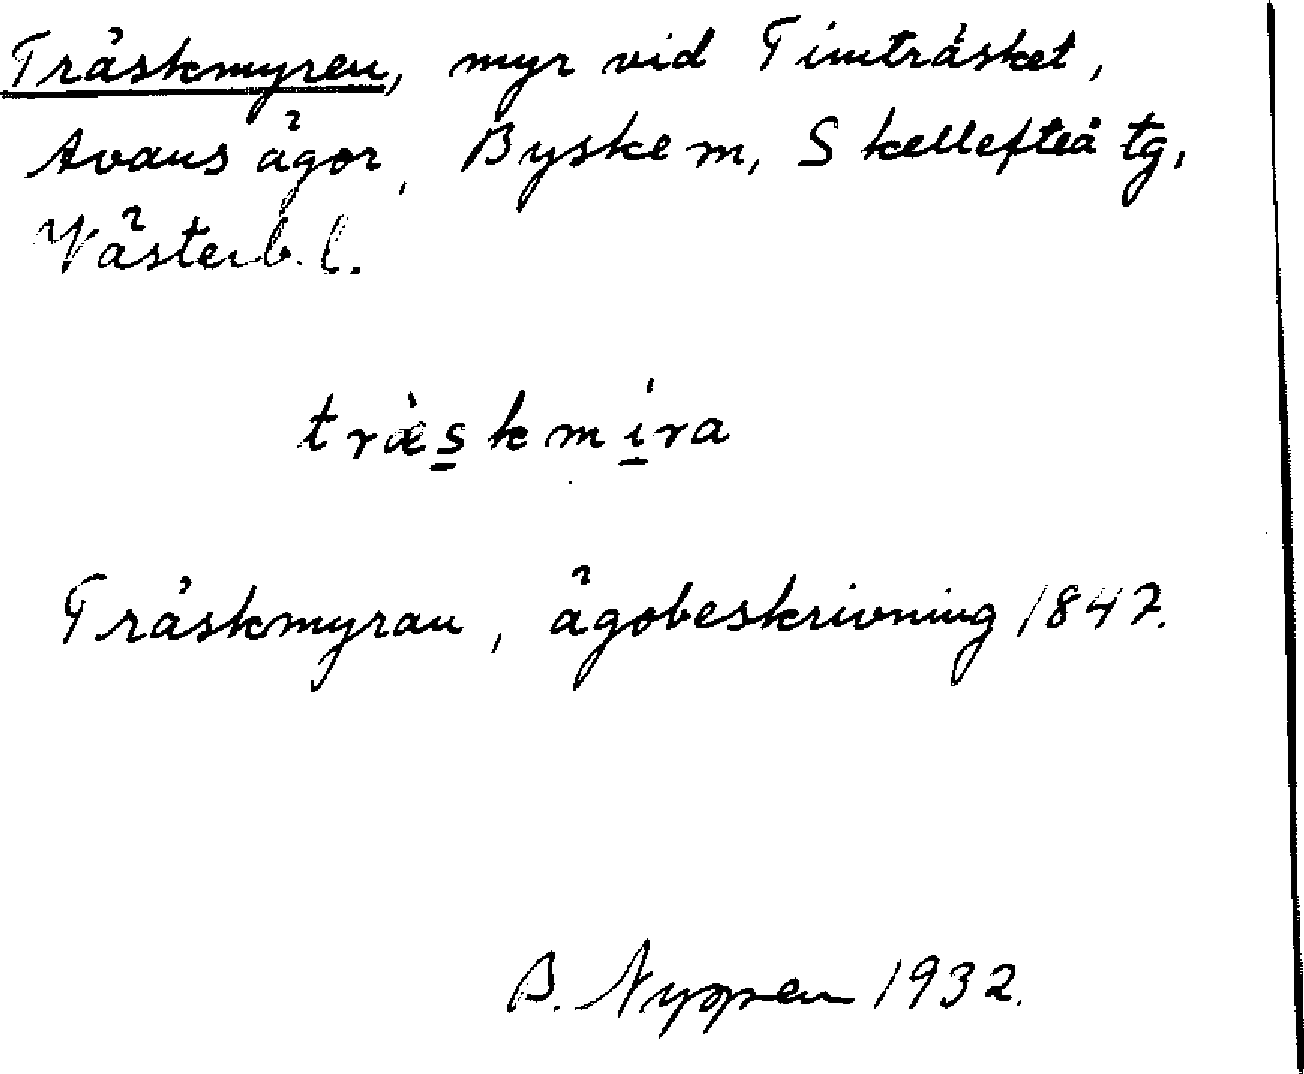 Träskmyren, myr vid Timträsket,
Avans ägor, Byske m, Skellefteå tg,
Västerb. l.
træ̀skmíra
Träskmyran, ägobeskrivning 1847.
B. Nyman 1932.